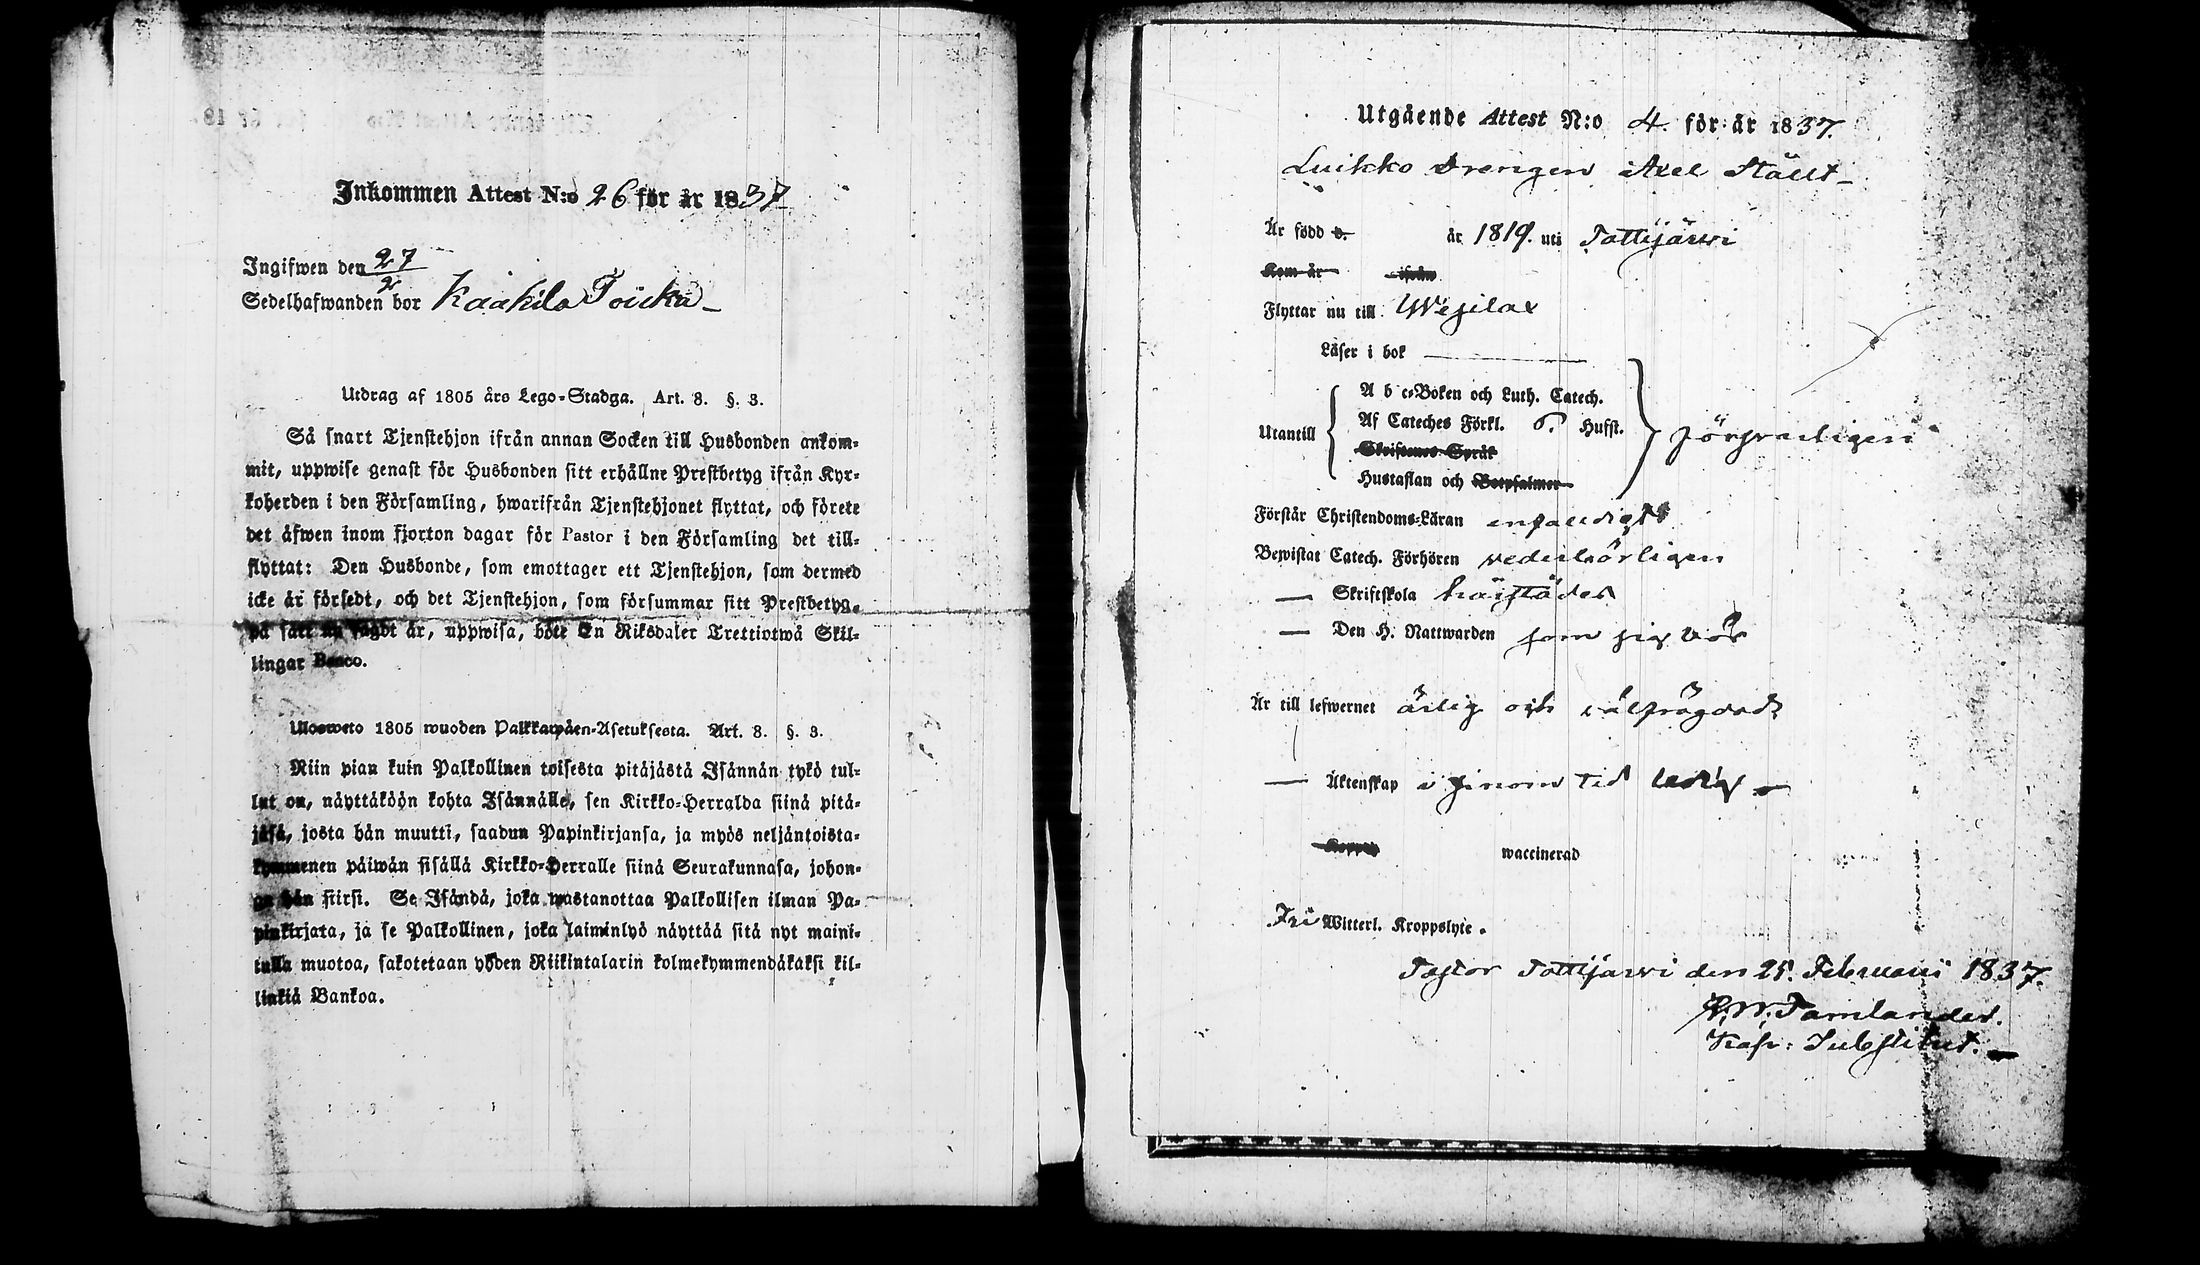 Inkommen Attest N:o 26 för år 1837
Ingifwen den 27/2
Sedelhafwanden bor Kaakila Toicka
Utdrag af 1805 års Lego-Stadga. Art. 8. §. 3.
Så snart Tjenstehjon ifrån annan Socken till Husbonden ankom-
mit, uppwise genast för Husbonden sitt erhållne Prestbetyg ifrån Kyr-
koherden i den Församling, hwarifrån Tjenstehjonet flyttat, och förete
det äfwen inom fjorton dagar för Pastor i den Församling det till-
flyttat: Den Husbonde, som emottager ett Tjenstehjon, som dermed
icke är försedt, och det Tjenstehjon, som försummar sitt Prestbetyg,
på sätt nu sagdt är, uppwisa, böte En Riksdaler Trettiotwå Skil-
lingar Banco.
Ulosweto 1805 wuoden Palkkawäen-Asetuksesta. Art. 8. §. 3.
Niin pian kuin Palkollinen toisesta pitäjästä Isännän tykö tul-
lut on, näyttäköön kohta Isännälle, sen Kirkko-Herralda siinä pitä-
jäsä, josta hän muutti, saadun Papinkirjansa, ja myös neljäntoista-
kymmenen päiwän sisällä Kirkko-Herralle siinä Seurakunnasa, johon-
ga hän siirsi. Se Isändä, joka wastanottaa Palkollisen ilman Pa-
pinkirjata, ja se Palkollinen, joka laiminlyö näyttää sitä nyt maini-
tulla muotoa, sakotetaan yhden Riikintalarin kolmekymmendäkaksi kil-
linkiä Bankoa.
Utgående Attest N:o 4 för år 1837.
Luikko Drengen Axel Ställt
Är född d. år 1819. uti Tottijärwi
Kom år ifrån
Flyttar nu till Wesilax
Läser i bok
Utantill
A b c-Boken och Luth. Catech.
Af Cateches Förkl. 6. Hufst.
Skriftenes Språk
Hustaflan och Botpsalmer
försvarligen
Förstår Christendoms-Läran enfaldigt
Bewistat Catech. Förhören wederbörligen
— Skriftskola härstädes
— Den H. Nattwarden som sig bör
Är till lefwernet ärlig och välfrägdad
— Äktenskap i sinom tid ledig
Koppor waccinerad
Fri Witterl. Kroppslyte.
Pastor Tottijärwi den 25. Februarii 1837.
Tamlander.
Substitut.